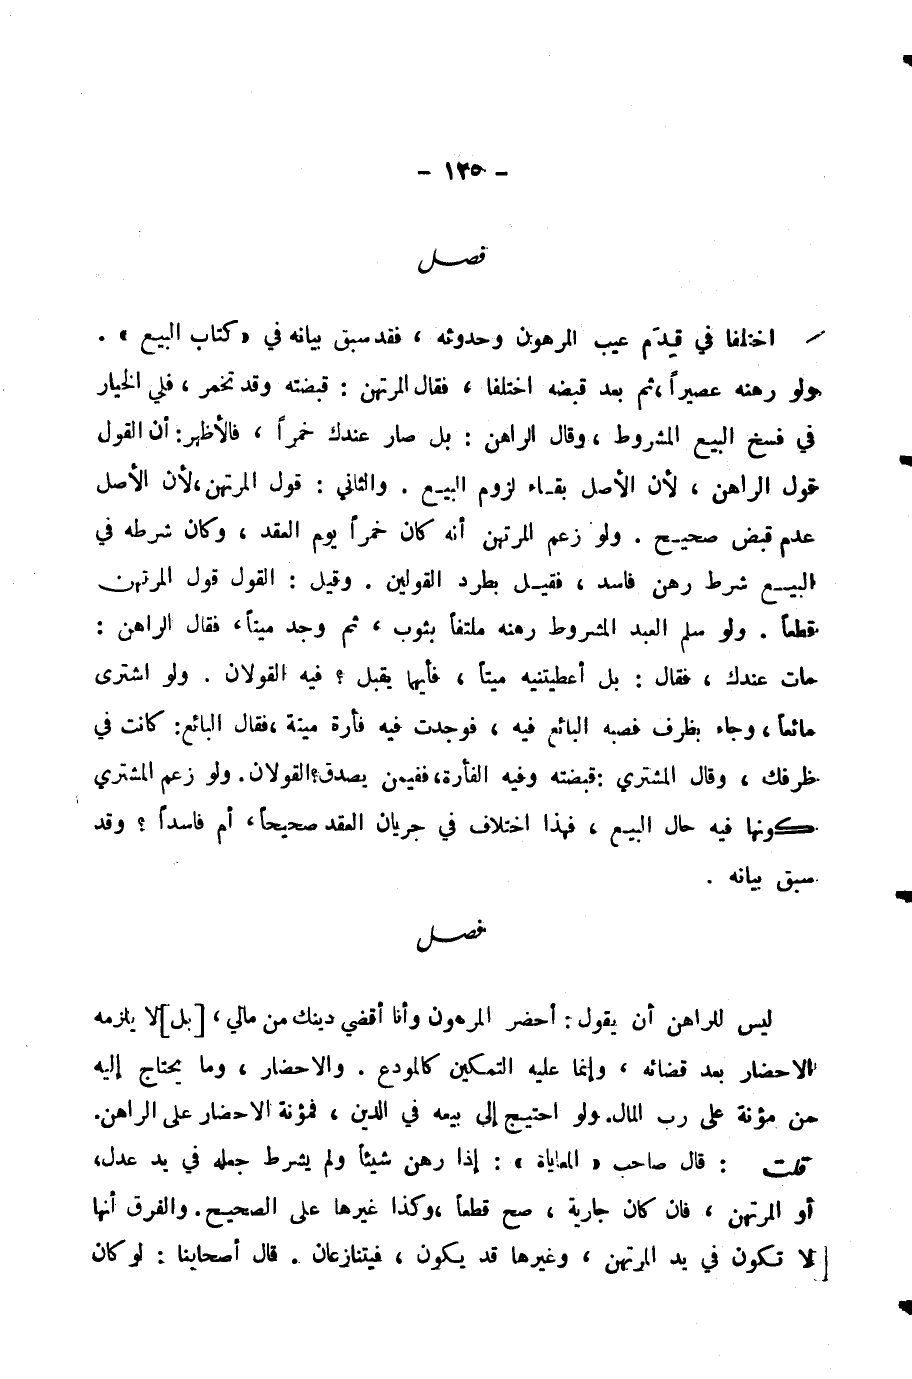 - ١٢٥ -
فصـــل
اختلفا في قِدَم عيب المرهون وحدوثه ، فقد سبق بيانه في «كتاب البيع » .
ولو رهنه عصيراً ،ثم بعد قبضه اختلفا ، فقال المرتهن : قبضته وقد تخمر ، فلي الخيار
في فسخ البيع المشروط ، وقال الراهن : بل صار عندك خمراً ، فالأظهر: أن القول
قول الراهن ، لأن الأصل بقـاء لزوم البيـع . والثاني : قول المرتهن،لأن الأصل
عدم قبض صحيـح . ولو زعم المرتهن أنه كان خمراً يوم العقد ، وكان شرطه في
البيـع شرط رهن فاسد ، فقيـل بطرد القولين . وقيل : القول قول المرتهـن
قطعاً . ولو سلم العبد المشروط رهنه ملتفاً بثوب ، ثم وجد ميتاً، فقال الراهن :
مات عندك ، فقال : بل أعطيتنيه ميتاً ، فأيها يقبل ؟ فيه القولان . ولو اشترى
مائعاً ، وجاء بظرف فصبه البائع فيه ، فوجدت فيه فأرة ميتة ،فقال البائع: كانت في
ظرفك ، وقال المشتري :قبضته وفيه الفأرة،ففيمن يصدق؟القولان. ولو زعم المشتري
كونها فيه حال البيع ، فهذا اختلاف في جريان العقد صحيحاً، أم فاسداً ؟ وقد
سبق بيانه .
فصـــل
ليس للراهن أن يقول : أحضر المرهون وأنا أقضي دينك من مالي ، [بل]لا يلزمه
الاحضار بعد قضائه ، وإنما عليه التمكين كالمودع . والاحضار ، وما يحتاج إليه
من مؤنة على رب المال. ولو احتيج إلى بيعه في الدين ، فمؤنة الاحضار على الراهن.
قلت : قال صاحب « المعاياة » : إذا رهن شيئاً ولم يشرط جعله في يد عدل،
أو المرتهن ، فان كان جارية ، صح قطعاً ،وكذا غيرها على الصحيح. والفرق أنها
لا تكون في يد المرتهن ، وغيرها قد يكون ، فيتنازعان . قال أصحابنا : لو كان